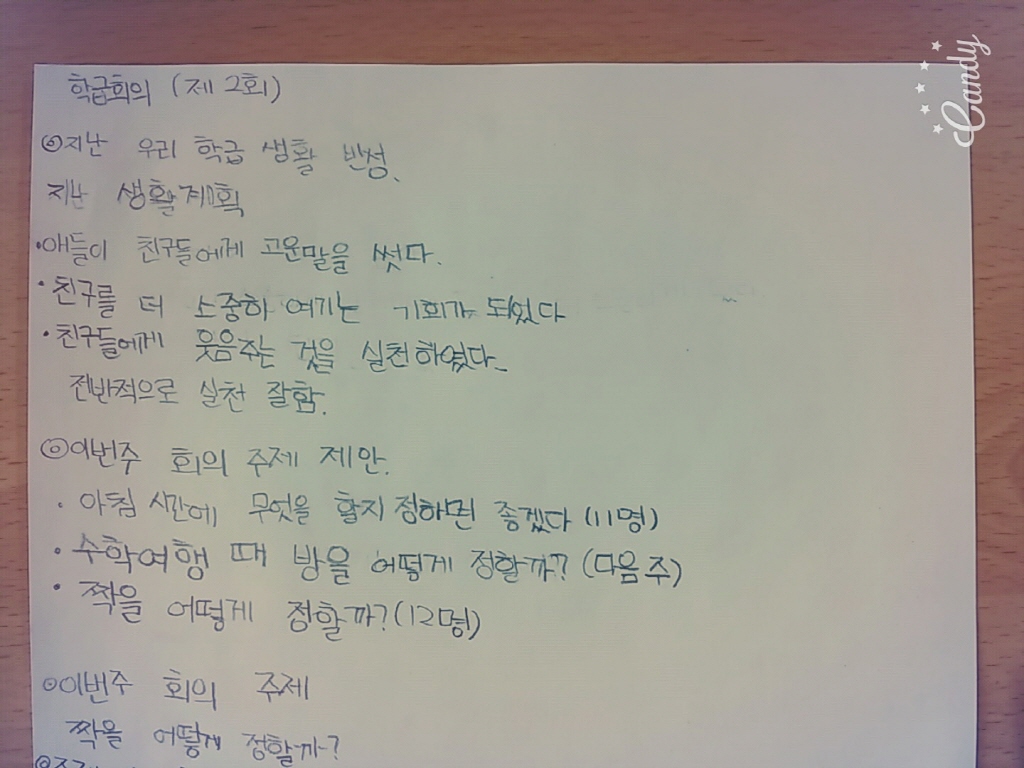 학급회의 (제 2회)
◎지난 우리 학급 생활 반성.
지난 생활계획
·애들이 친구들에게 고운말을 썻다.
·친구를 더 소중하 여기는 기회가 되었다
·친구들에게 웃음주는 것을 실천하였다.
전반적으로 실천 잘함.
◎이번주 회의 주제 제안.
·아침 시간에 무엇을 할지 정하면 좋겠다 (11명)
·수학여행 때 방을 어떻게 정할까? (다음주)
·짝을 어떻게 정할까? (12명)
◎이번주 회의 주제
짝을 어떻게 정할까?
Candy